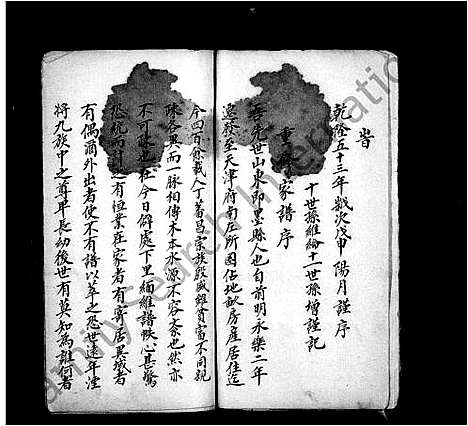 旹
乾隆五十三年歲次戊申陽月謹序
重 家譜序
十世孫維綸十一世孫增謹記
吾先世山東即墨縣人也自前明永樂二年
遷發至天津府南左所因佔地畝房產居住迄
今四百餘載人丁蕃昌宗族殷盛雖貧富不同親
疎各異而一脈相傳木本水源不容紊也然亦
不可 也在今日僻處下里緬維譜 心甚驚
恐統而計之有恒業在家者有寄居異域者
有偶爾外出者使不有譜以萃之恐世遠年湮
將九族中之尊卑長幼後世有莫知為誰何者
FamilySearch International